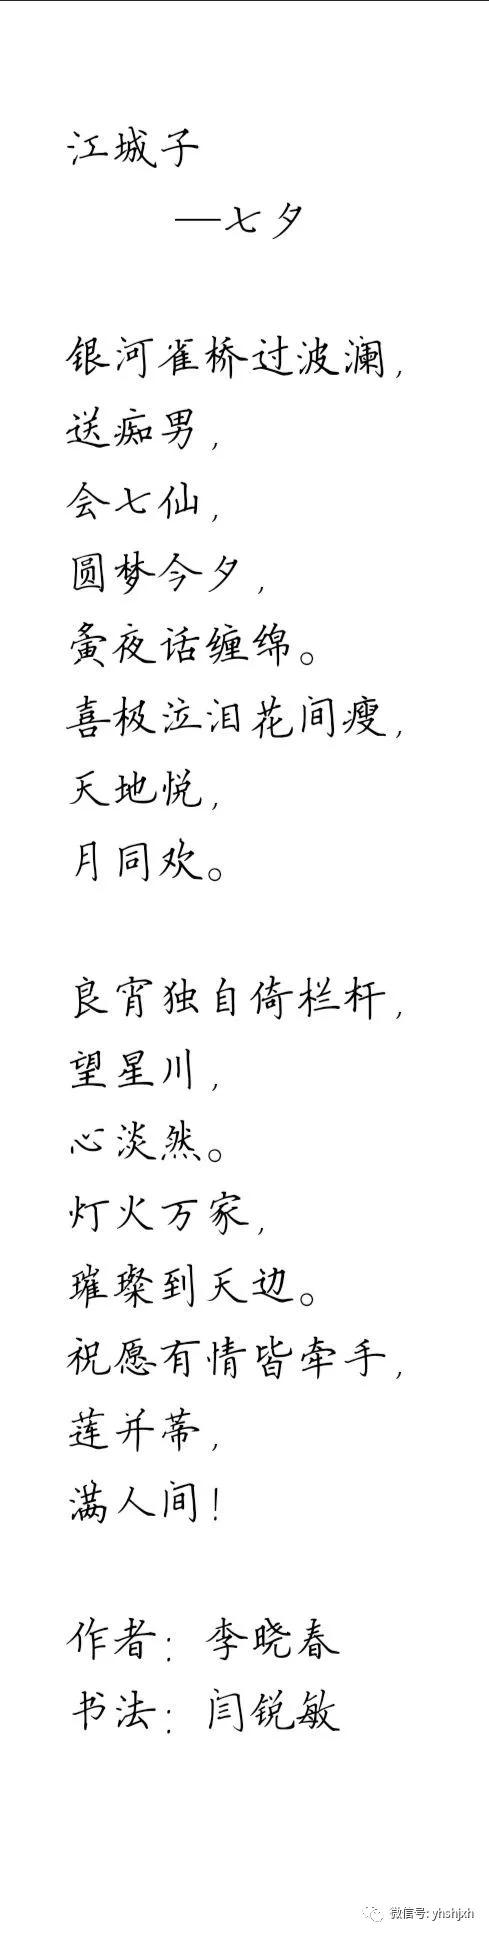 江城子
—七夕
银河雀桥过波澜，
送痴男，
会七仙，
圆梦今夕，
夤夜话缠绵。
喜极泣泪花间瘦，
天地悦，
月同欢。
良宵独自倚栏杆，
望星川，
心淡然。
灯火万家，
璀璨到天边。
祝愿有情皆牵手，
莲并蒂，
满人间！
作者：李晓春
书法：闫锐敏
微信号: yhshjxh